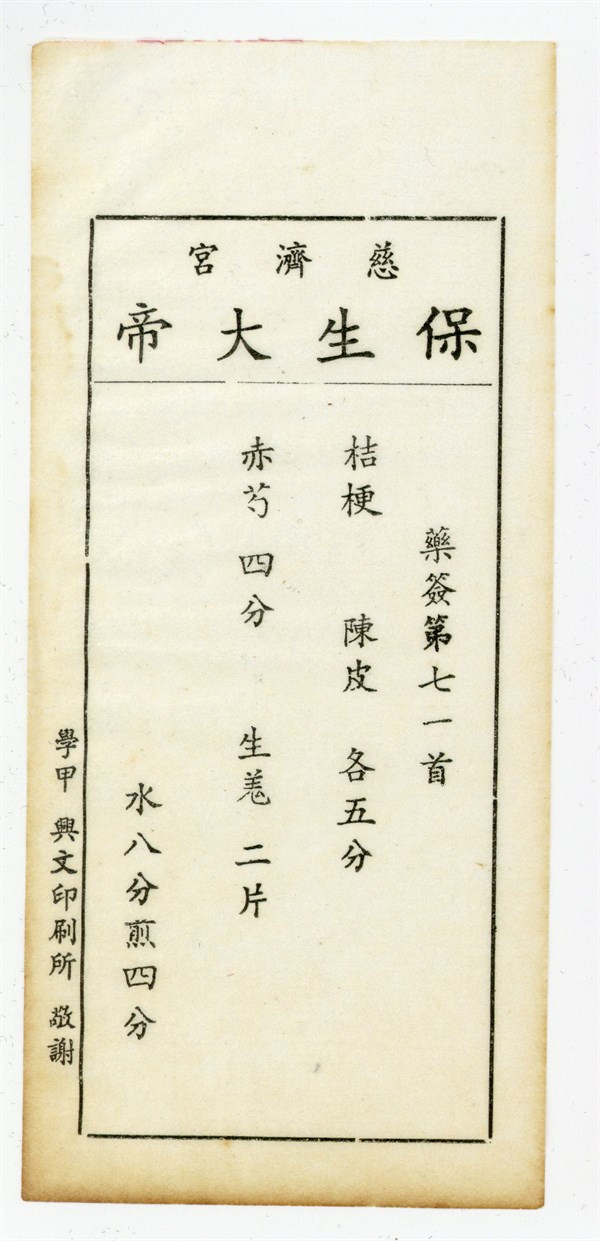 慈濟宮
保生大帝
藥簽第七一首
桔梗 陳皮 各五分
赤芍 四分 生羗 二片
水八分煎四分
學甲 興文印刷所 敬謝